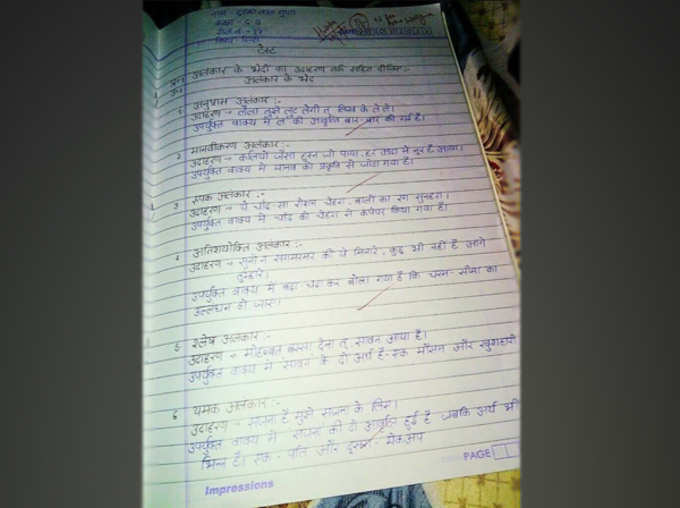 नाम
कक्षा
टेस्ट
अलंकार के भेदों का उदाहरण सहित
अलंकार के भेद
1 अनुप्रास अलंकार :-
उदाहरण → लैला तुझे लुट लेगी तू लिख के लेले।
उपर्युक्त वाक्य में ल की आवृति बार-बार की गई है।
2 मानवीकरण अलंकार :-
उदाहरण → कलियों जैसा हुस्न जो पाया,
उपर्युक्त वाक्य में मानव को प्रकृति से जोड़ा गया है।
3 रूपक अलंकार :-
उदाहरण → ये चाँद सा रोशन चेहरा, बालों का रंग सुनहरा।
उपर्युक्त वाक्य में चाँद की चेहरा से कंपेयर किया गया है।
4 अतिशयोक्ति अलंकार :-
उदाहरण → सुनो न संगमरमर की ये मिनारे, कुछ भी नहीं है आगे
तुम्हारे।
उपर्युक्त वाक्य में बढ़ा चढ़ा कर बोला गया है कि चरम-सीमा का
उल्लंघन हो जाए।
5 श्लेष अलंकार :-
उदाहरण → मोहब्बत बरसा देना तू, सावन आया है।
उपर्युक्त वाक्य में 'सावन' के दो अर्थ है- एक मौसम और खुशहाली
6 यमक अलंकार :-
उदाहरण → सजना है मुझे सजना के लिए।
उपर्युक्त वाक्य में 'सजना' की दो आवृति हुई है जबकि अर्थ भी
भिन्न है। एक - पति और दूसरा - मेकअप
PAGE
Impressions